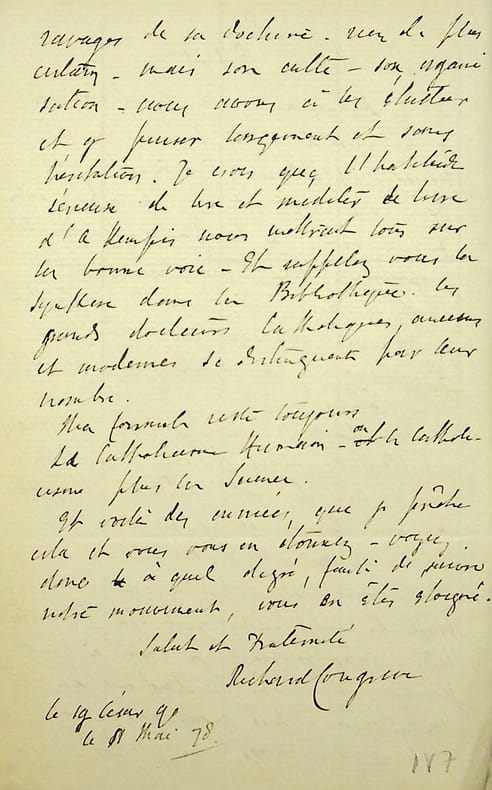 ravages de sa doctrine. rien de plus
certain - mais son culte - son organi
sation - nous avons à les étudier
et y penser longuement et sans
hésitation. Je crois que l'habitude
sérieuse de lire et méditer ce livre
d'A Kempis nous mettrait tous sur
la bonne voie - Et rappelez vous la
synthèse dans la Bibliothèque. les
grands docteurs Catholiques, anciens
et modernes se distinguent par leur
nombre.
Ma formule reste toujours
Le Catholicisme Humain - ou le Catholi-
cisme plus la Science.
Et voilà des années, que je prêche
cela et vous vous en étonnez - voyez
donc à quel degré, faute de suivre
notre mouvement, vous en êtes éloigné.
Salut et Fraternité
Richard Congreve
le 19 César 90
le 11 Mai 78.
187